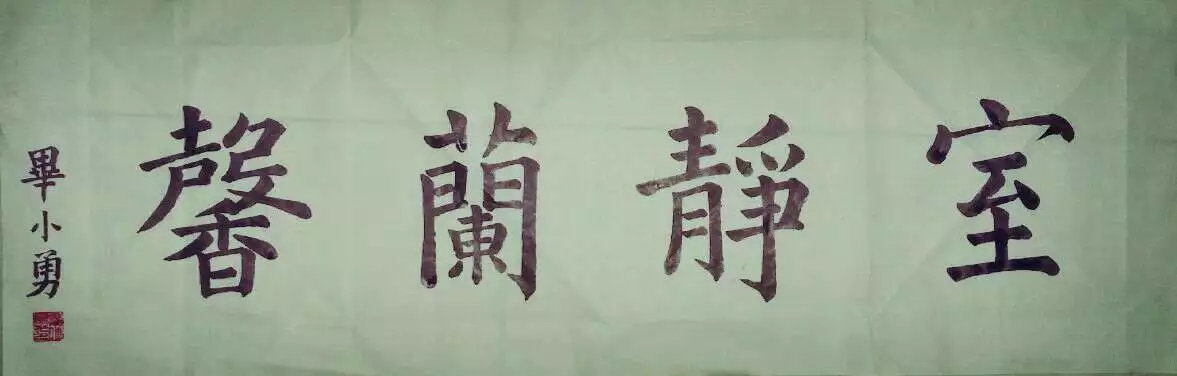 室靜蘭馨
畢小勇